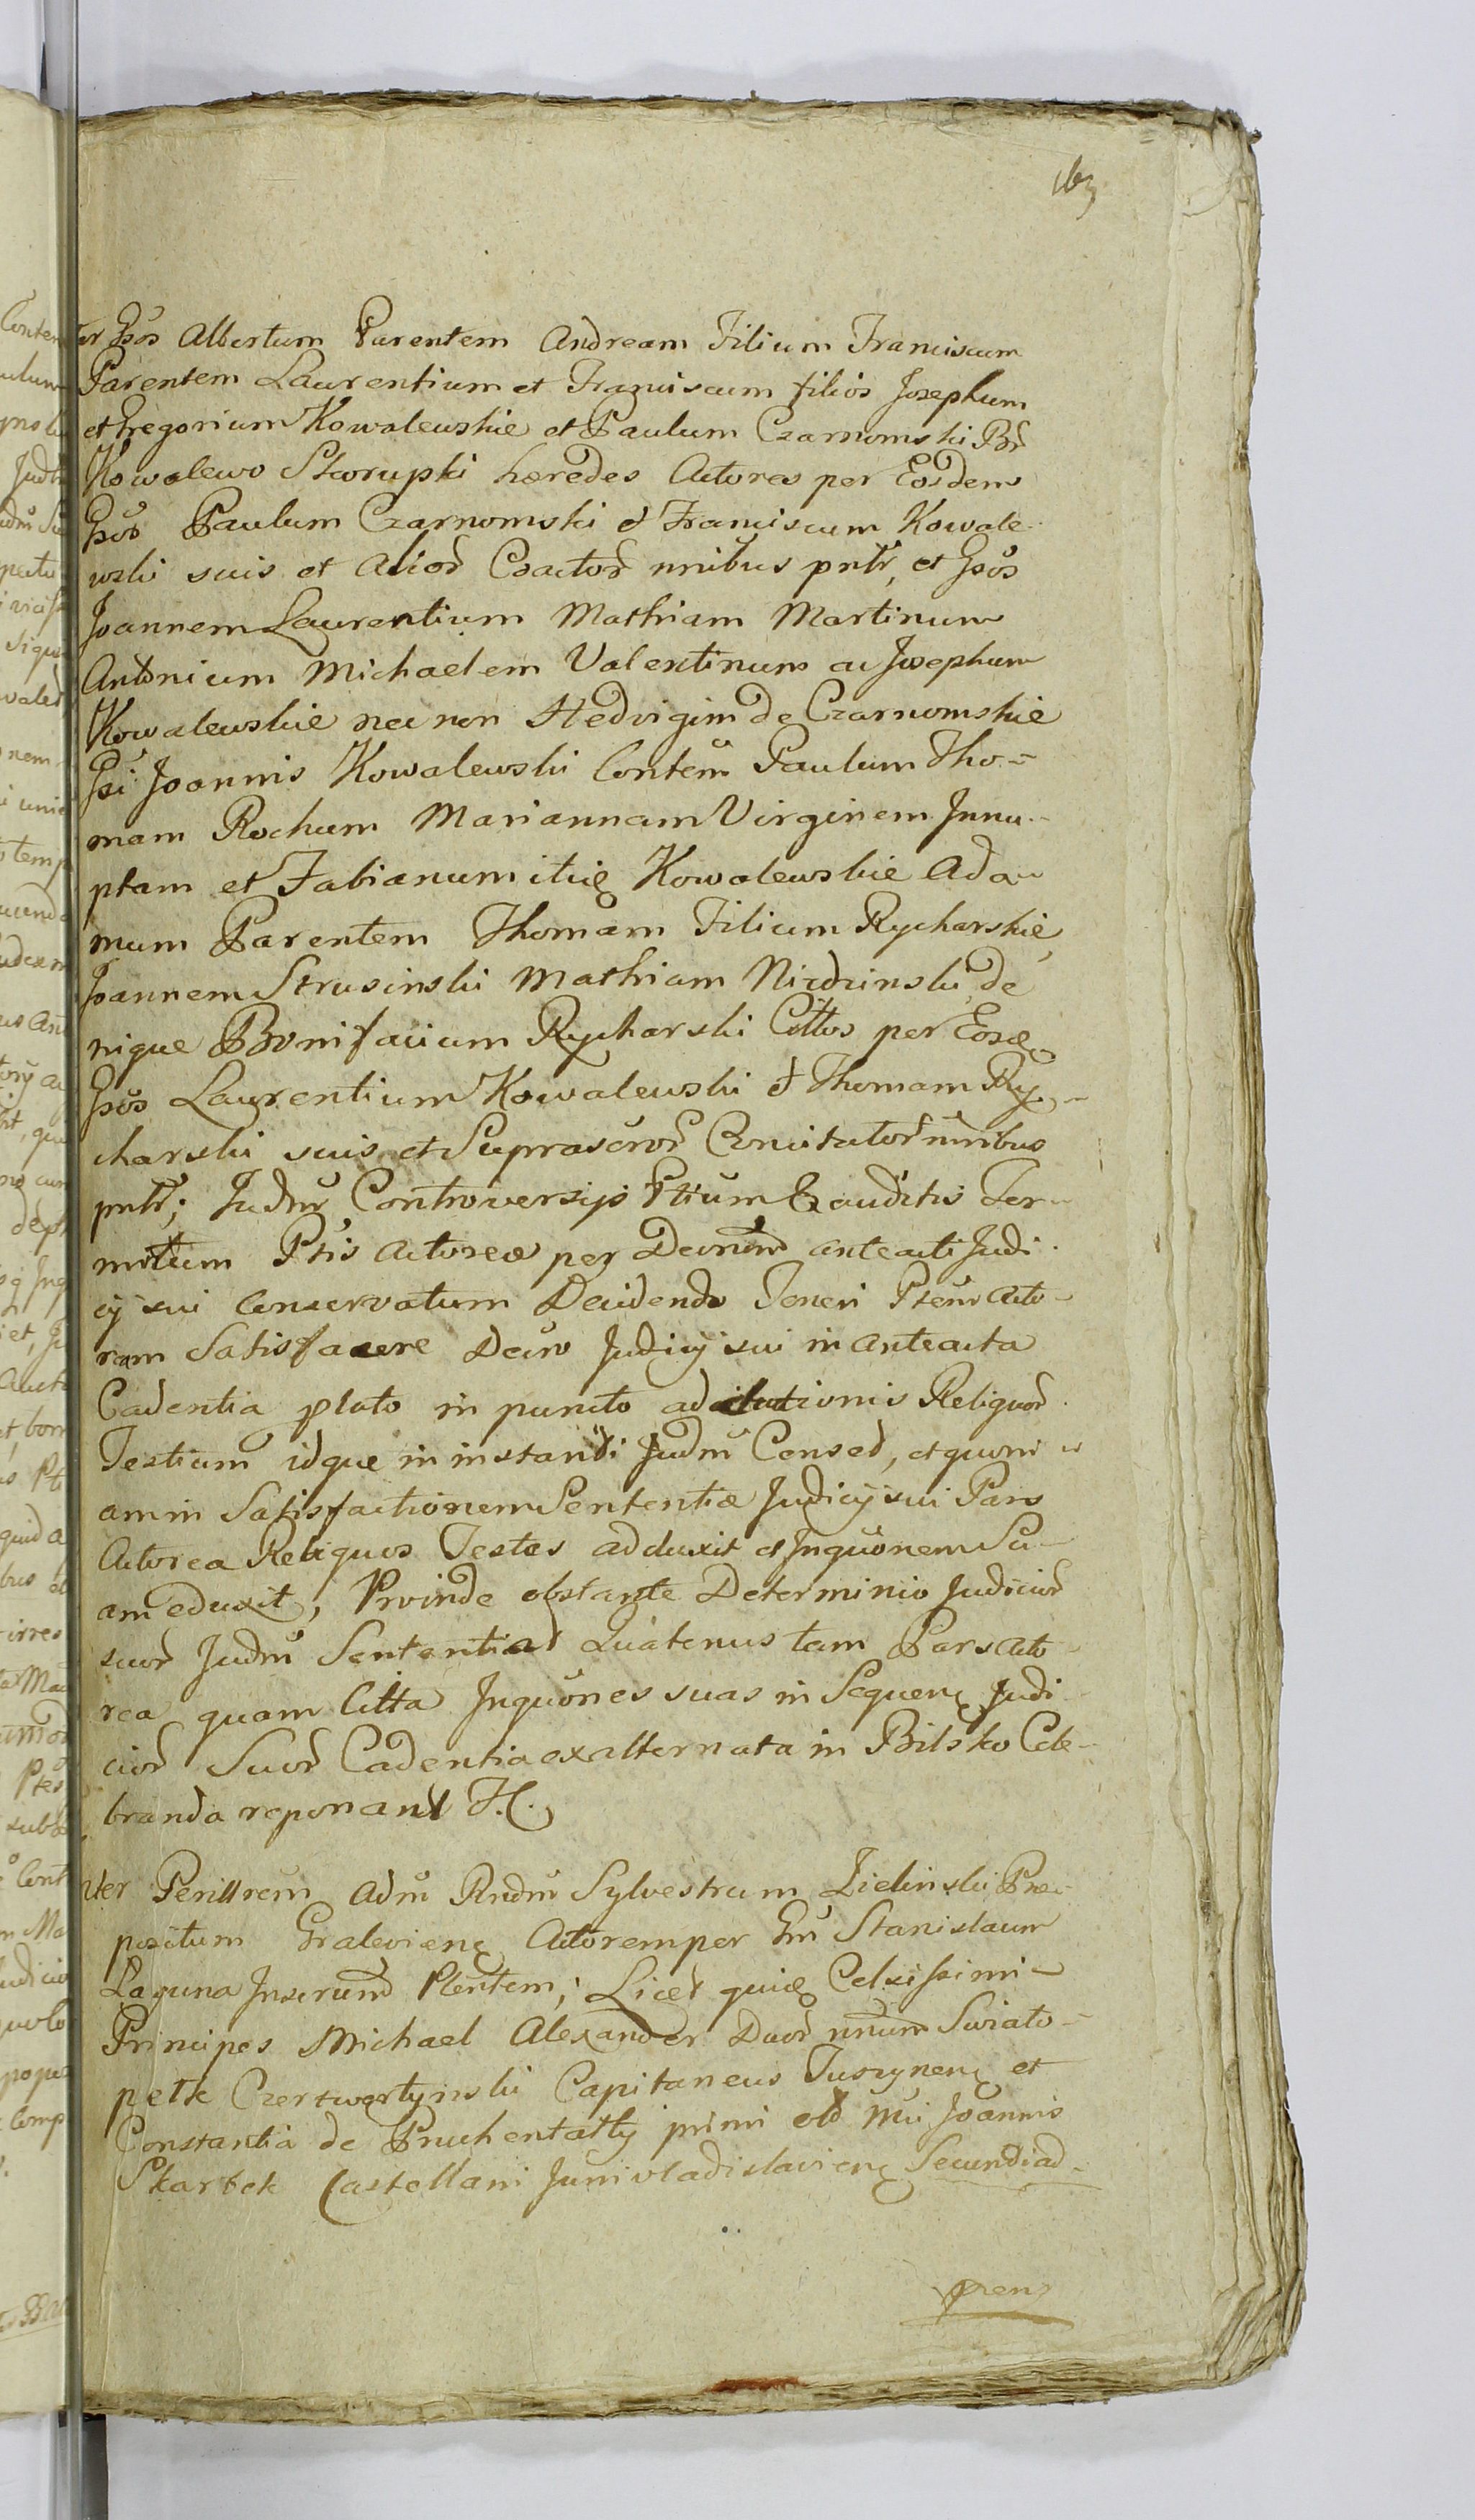 163
Gsos Albertum Parentem Andream Filium Franciscum
Parentem Laurentium et Franciscum filios Josephum
et Gregorium Kowalewskie et Paulum Czarnomski
Kowalewo Skorupki hæredes Actores per Eosdem
Gsos Paulum Czarnomski et Franciscum Kowale-
wski suis et Alior Coactor nnibus pntt, et Gsos
Joannem Laurentium Mathiam Martinum
Antonium Michaelem Valentinum ac Josephum
Kowalewskie nec non Hedvigim de Czarnomskie
Gsi Joannis Kowalewski Contem Paulum Tho-
mam Rochum Mariannam Virginem Innu-
ptam et Fabianum itidę Kowalewskie Ada-
mum Parentem Thomam Filium Rycharskie,
Joannem Strusinski Mathiam Nidzinski, de
nique Bonifacium Rycharski Cittos per
Gsos Laurentium Kowalewski et Thomam Ry-
charski suis et Suprascror Concitator nnibus
pntt; Judm Controversijs Ptium Exauditis Ter-
minum Ptis Actoreæ per Decretum anteacti Judi-
cij sui conservatum Decidendo Teneri Ptem Acto-
ream Satisfacere Decro Judicij sui in anteacta
Cadentia plato in puncto adductionis Reliquor
Testium idque in instanti Judm Censet, et quoni
am in Satisfactionem Sententiæ Judicij sui Pars
Actorea Reliquos Testes adduxit et Inquonem Su-
am eduxit, Proinde obstante Determinio Judicior
suor Judm Sententiat Quatenus tam Pars Acto-
rea quam Citta Inquones suas in Sequenę Judi
cior Suor Cadentia ex alternata in Bilsko Cele-
branda reponant H.
Inter Perillrem Adm Rndm Sylvestrum Zielinski Præ-
positum Gralevienę Actorem per Gm Stanislaum
Laguna Plentem; Licet quidę Celsissimi
Principes Michael Alexander Duor nnum Swiato-
pelk Czertwertynski Capitaneus Tuszynenę et
Constantia de primi olim Joannis
Skarbek Castellani Junivladislavienę Secundi ad-
prens